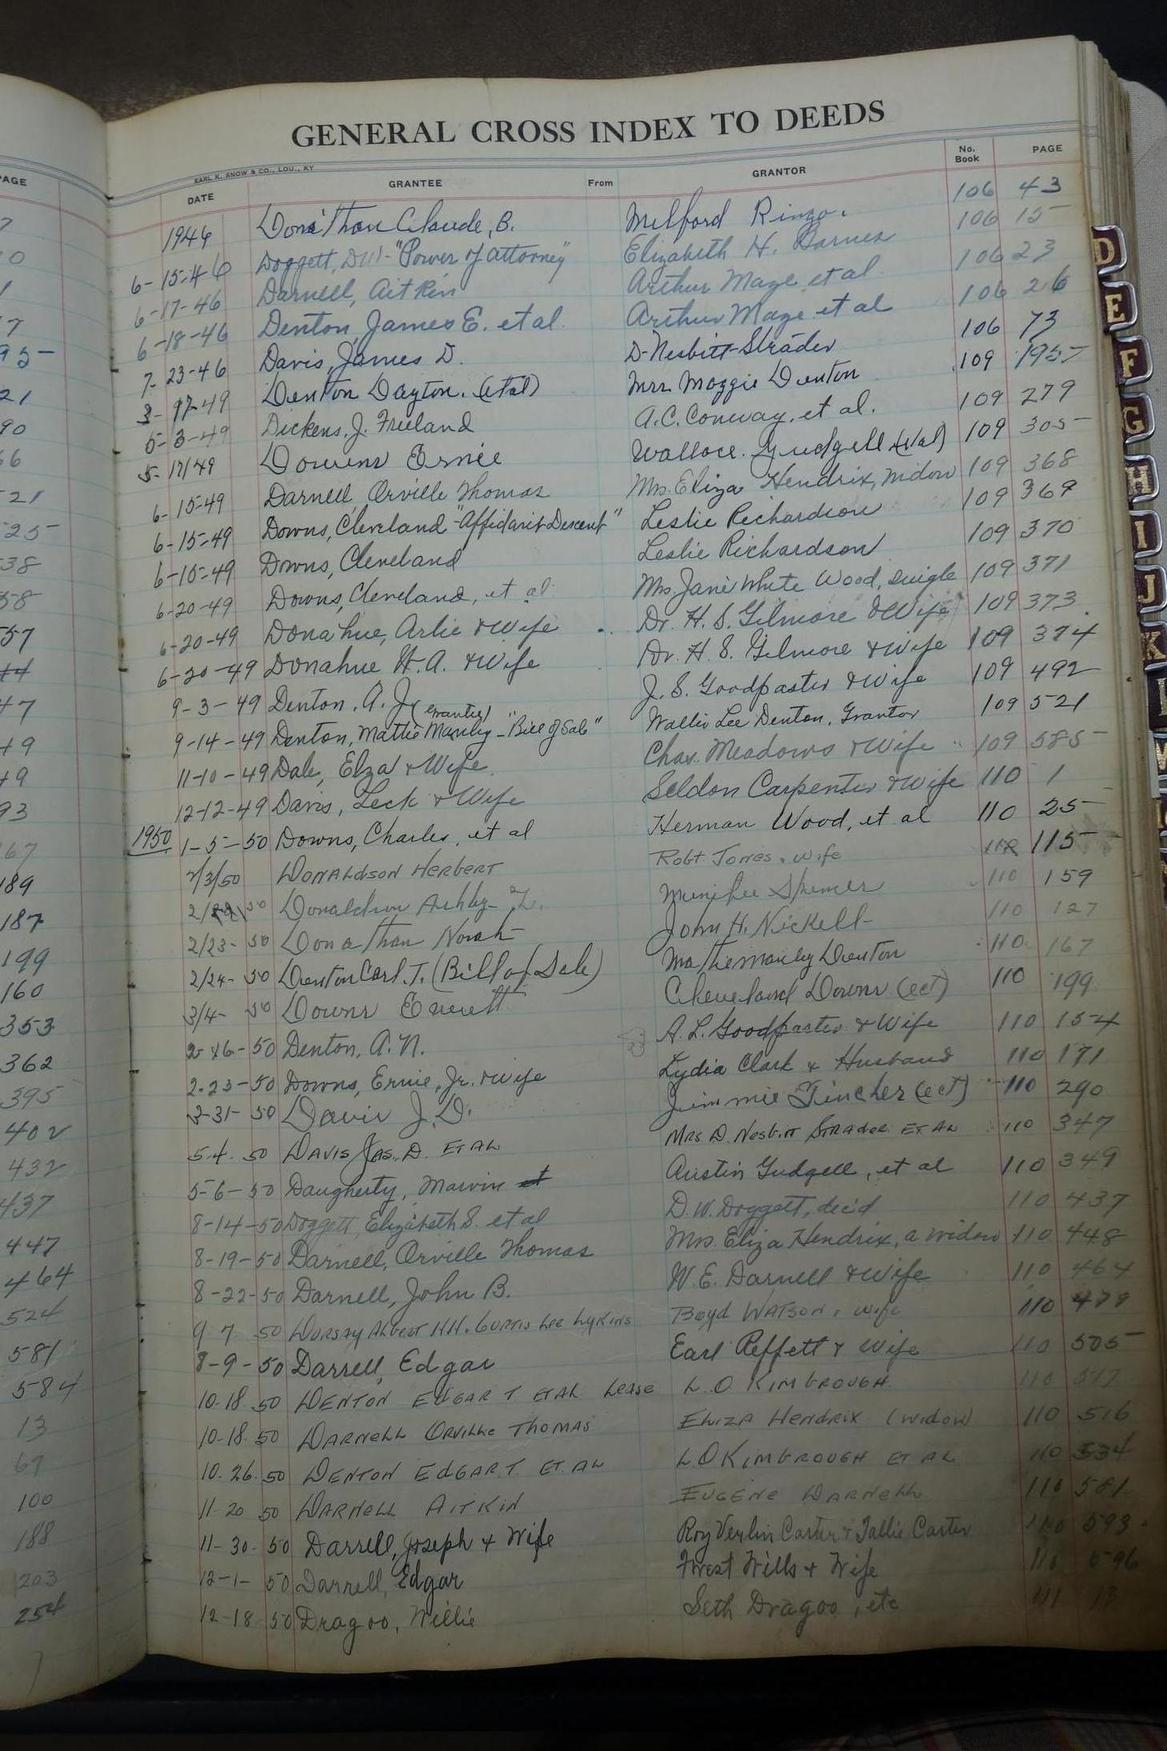 GENERAL CROSS INDEX TO DEEDS
EARL K. SNOW & CO., LOU., KY
DATE GRANTEE From GRANTOR No. Book PAGE
1946 Donathan Claude, B. Milford Ringo. 106 43
6-15-46 Doggett, DW- "Power of attorney" Elizabeth H. Barnes 106 15
6-17-46 Darnell, Aitkin Arthur Maze et al 106 23
6-18-46 Denton, James E. et al. Arthur Maze et al 106 26
7-23-46 Davis, James D. D Nesbitt Strader 106 73
3-17-49 Denton Dayton. (etal) Mrs. Maggie Denton 109 195
5-3-49 Dickens, J. Freeland A.C. Conway, et al. 109 279
5-17/49 Downs Ernie Wallace. Gudgell (etal) 109 305
6-15-49 Darnell Orville Thomas Mrs. Eliza Hendrix, widow 109 368
6-15-49 Downs, Cleveland "Affidavit Descent" Leslie Richardson 109 369
6-15-49 Downs, Cleveland Leslie Richardson 109 370
6-20-49 Downs, Cleveland, et al Mrs. Janie White Wood, single 109 371
6-20-49 Donahue, Arlie & Wife Dr. H. S. Gilmore & Wife 109 373
6-20-49 Donahue H. A. & Wife Dr. H. S. Gilmore & Wife 109 374
9-3-49 Denton, A. J. J. S. Goodpaster & Wife 109 492
9-14-49 Denton, Mattie Manley (grantee) - "Bill of Sale" Wallis Lee Denton, Grantor 109 521
11-10-49 Dale, Elza & Wife Chas. Meadows & Wife 109 585
12-12-49 Davis, Leck & Wife Seldon Carpenter & Wife 110 1
1950 1-5-50 Downs, Charles, et al Herman Wood, et al 110 25
2/3/50 DONALDSON HERBERT Robt Jones & Wife 110 115
50 Donaldson Ashby Menifee Spencer 110 159
2/23-50 Donathan Norah John H. Nickell 110 127
2/24-50 Denton Carl. T. (Bill of Sale) Mattie Manley Denton 110 167
3/4-50 Downs Everett Cleveland Downs (ect) 110 199
50 Denton, A. N. A. L. Goodpaster & Wife 110 154
2-23-50 Downs, Ernie, Jr. & Wife Lydia Clark & Husband 110 171
3-31-50 Davis J. D. Jimmie Fincher (ect) 110 290
5.4.50 DAVIS JAS. D. ET AL MRS D. Nesbitt STRADER ET AL 110 347
5-6-50 Daugherty, Marvin et Austin Gudgell, et al 110 349
8-14-50 Doggett, Elizabeth S. et al D. W. Doggett, dec'd 110 437
8-19-50 Darnell, Orville Thomas Mrs. Eliza Hendrix, a widow 110 448
8-22-50 Darnell, John B. W. E. Darnell & Wife 110 464
9 7 50 DORSAY Albert HH. CURTIS Lee Lykins Boyd WATSON & wife 110 479
8-9-50 Darrell, Edgar Earl Reffett & Wife 110 505
10-18.50 DENTON EDGAR T ETAL Lease L. O KIMBROUGH 110 517
10-18.50 DARNELL ORVILLE THOMAS ELIZA HENDRIX (WIDOW) 110 516
10.26.50 DENTON EDGAR T. ET AL L O KIMBROUGH ET AL 110 534
11-20 50 DARNELL AITKIN EUGENE DARNELL 110 581
11-30-50 Darrell, Joseph & Wife Roy Verlin Carter & Tallie Carter 110 593
12-1-50 Darrell, Edgar Forest Wills & Wife 110 596
12-18-50 Dragoo, Willie Seth Dragoo, etc 111 13
PAGE
D
E
F
G
H
I
J
K